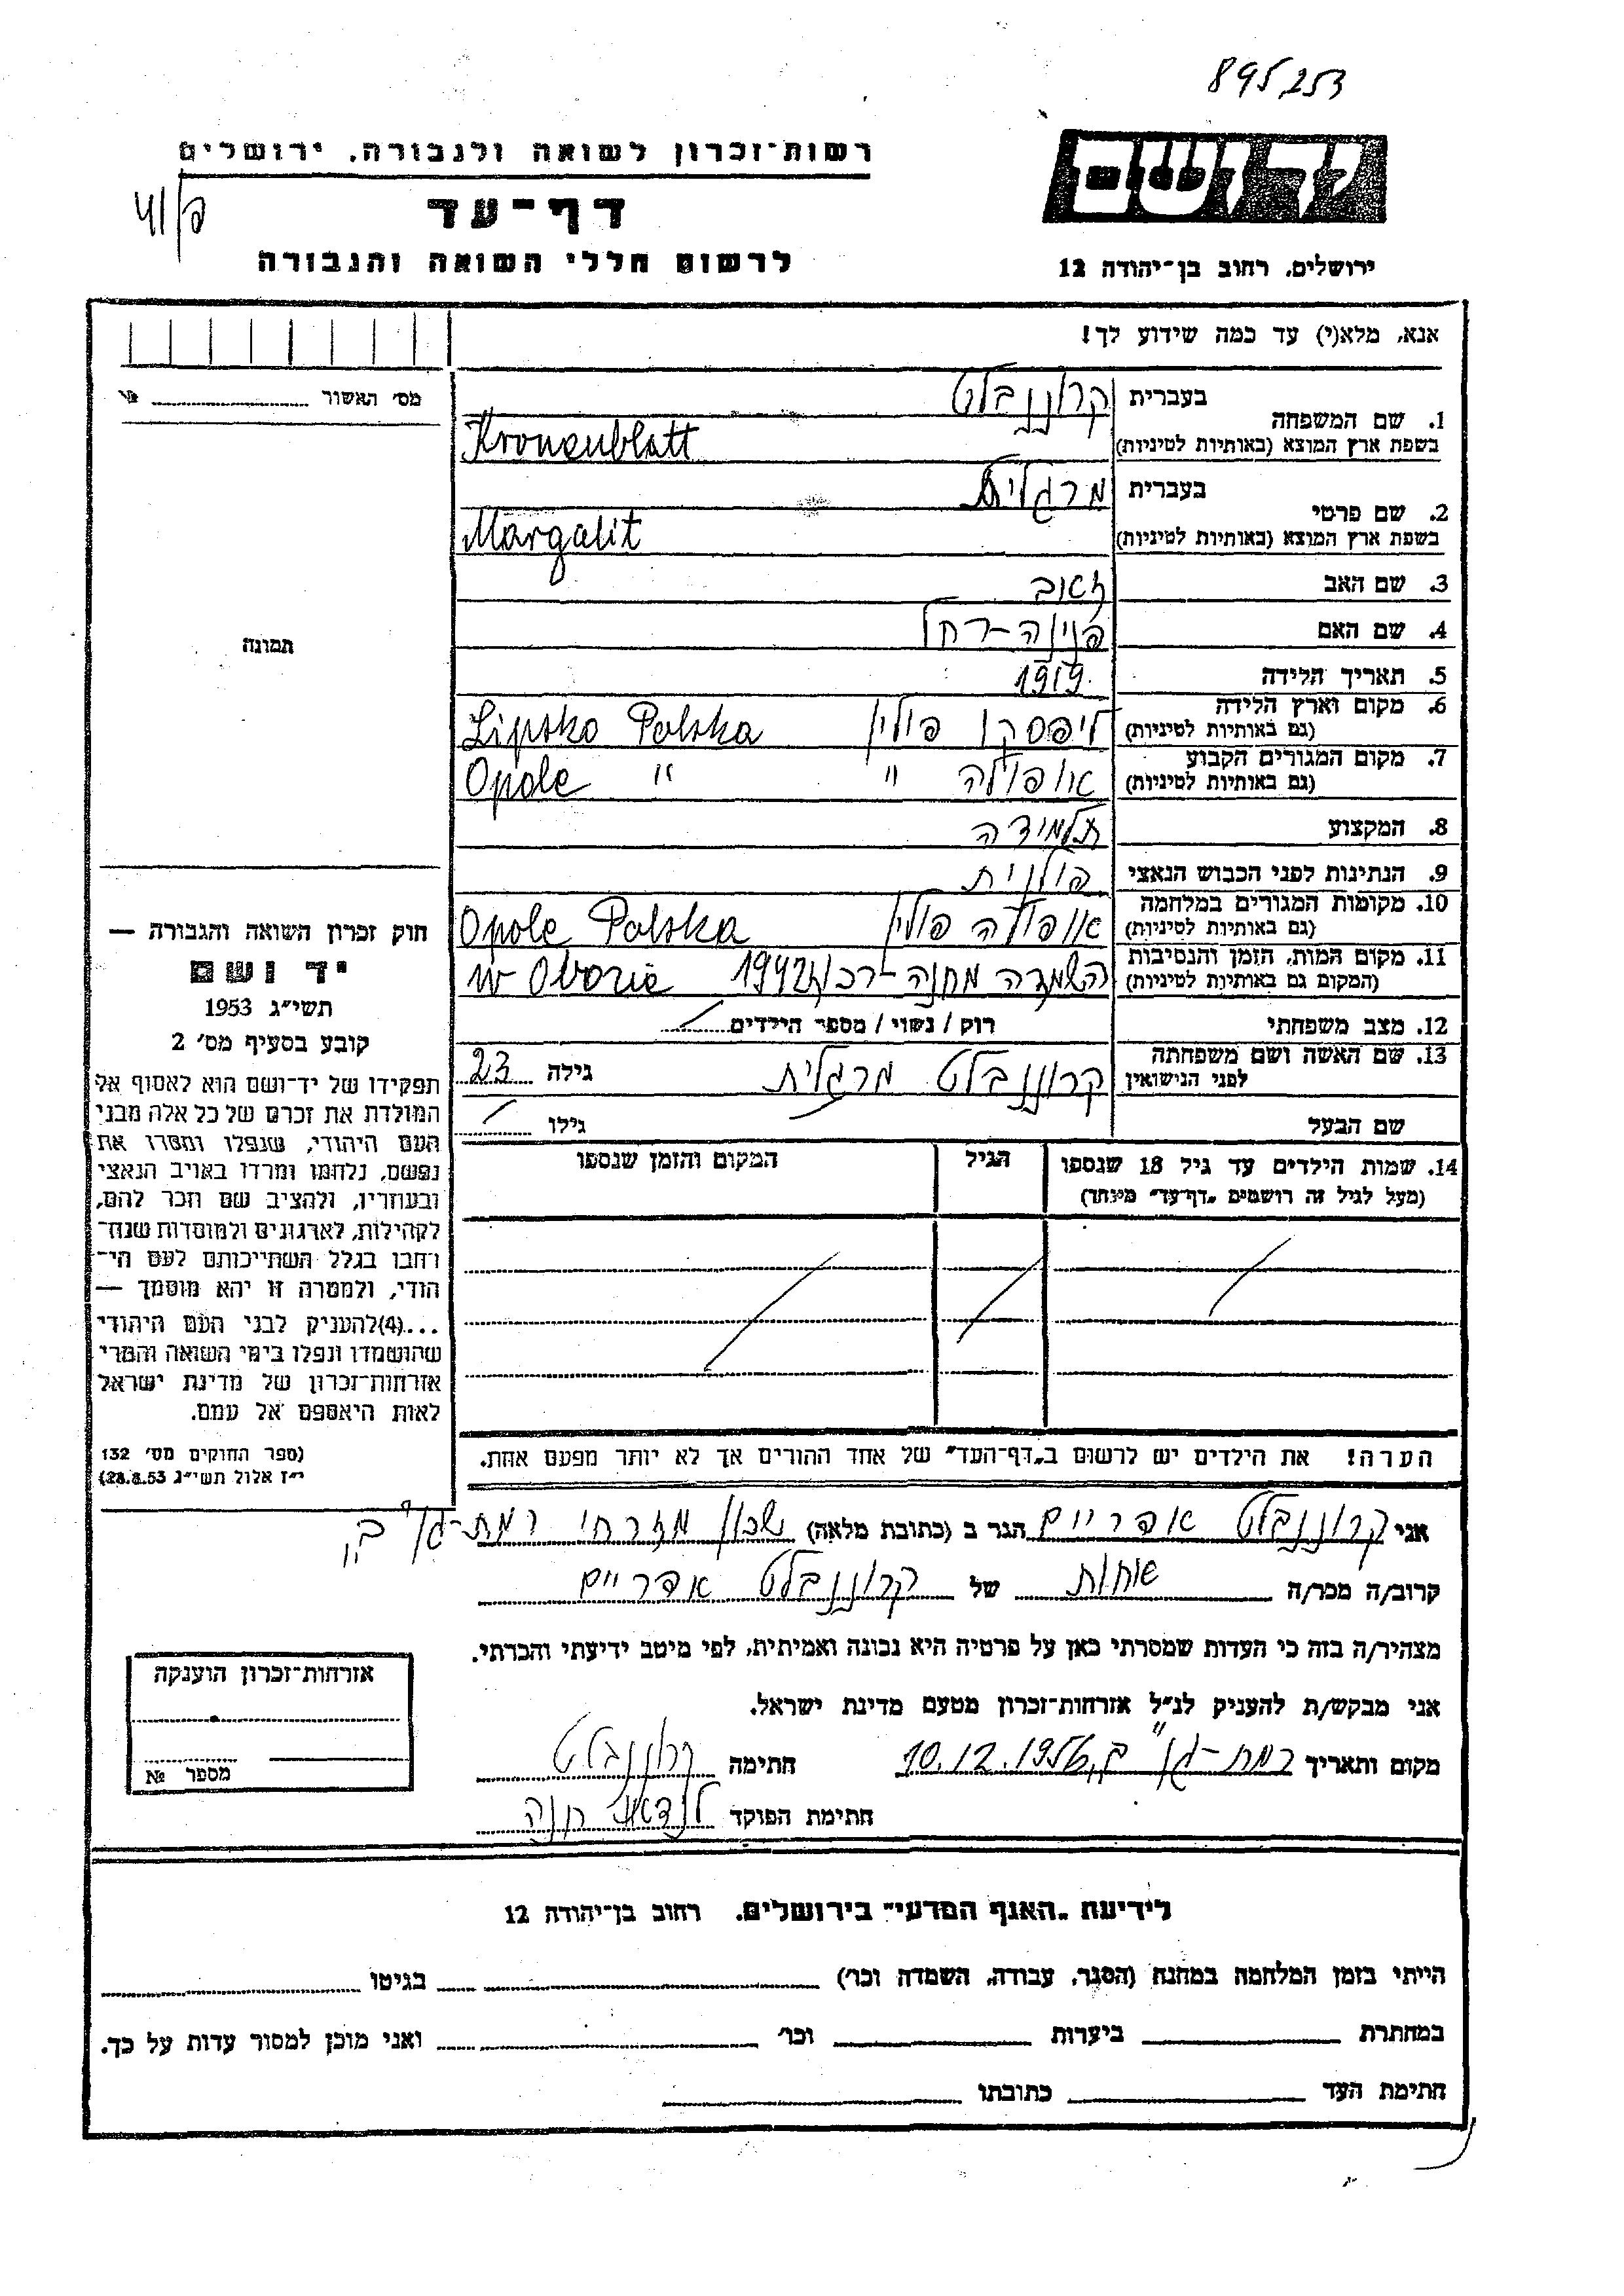 895253
רשות-זכרון לשואה ולגבורה, ירושלים
יד ושם
דף-עד
לרשום חללי השואה והגבורה
ירושלים, רחוב בן-יהודה 12
אנא, מלא(י) עד כמה שידוע לך!
מס׳ האשור №
1. שם המשפחה בעברית קרוננבלט
בשפת ארץ המוצא (באותיות לטיניות) Kronenblatt
2. שם פרטי בעברית מרגלית
בשפת ארץ המוצא (באותיות לטיניות) Margalit
תמונה
3. שם האב זאב
4. שם האם פנינה-רחל
5. תאריך הלידה 1919
6. מקום וארץ הלידה (גם באותיות לטיניות) ליפסקו פולין Lipsko Polska
7. מקום המגורים הקבוע (גם באותיות לטיניות) אופולה " Opole "
8. המקצוע תלמידה
9. הנתינות לפני הכבוש הנאצי פולנית
10. מקומות המגורים במלחמה (גם באותיות לטיניות) אופולה פולין Opole Polska
11. מקום המות, הזמן והנסיבות (המקום גם באותיות לטיניות) השמדה מחנה 1942 w Obozie
12. מצב משפחתי רוק / נשוי / מספר הילדים
13. שם האשה ושם משפחתה לפני הנישואין קרוננבלט מרגלית גילה 23
שם הבעל גילו
14. שמות הילדים עד גיל 18 שנספו הגיל המקום והזמן שנספו
(מעל לגיל זה רושמים "דף-עד" מיוחד)
הערה! את הילדים יש לרשום ב"דף-העד" של אחד ההורים אך לא יותר מפעם אחת.
חוק זכרון השואה והגבורה —
יד ושם
תשי״ג 1953
קובע בסעיף מס׳ 2
תפקידו של יד-ושם הוא לאסוף אל
המולדת את זכרם של כל אלה מבני
העם היהודי, שנפלו ומסרו את
נפשם, נלחמו ומרדו באויב הנאצי
ובעוזריו, ולהציב שם וזכר להם,
לקהילות, לארגונים ולמוסדות שנח-
רבו בגלל השתייכותם לעם הי-
הודי, ולמטרה זו יהא מוסמך —
...(4)להעניק לבני העם היהודי
שהושמדו ונפלו בימי השואה והמרי
אזרחות-זכרון של מדינת ישראל
לאות היאספם אל עמם.
(ספר החוקים מס׳ 132
י״ז אלול תשי״ג 28.8.53)
אני קרוננבלט אפריים הגר ב (כתובת מלאה) שכון מזרחי רמת-גן ב׳
קרוב/ה מכר/ה אחות של קרוננבלט אפריים
מצהיר/ה בזה כי העדות שמסרתי כאן על פרטיה היא נכונה ואמיתית, לפי מיטב ידיעתי והכרתי.
אני מבקש/ת להעניק לנ״ל אזרחות-זכרון מטעם מדינת ישראל.
מקום ותאריך רמת-גן ב׳ 10.12.1956 חתימה קרוננבלט
חתימת הפוקד לנדאו חנה
אזרחות-זכרון הוענקה
מספר №
לידיעת "האגף המדעי" בירושלים, רחוב בן-יהודה 12
הייתי בזמן המלחמה במחנה (הסגר, עבודה, השמדה וכו׳) בגיטו
במחתרת ביערות וכו׳ ואני מוכן למסור עדות על כך.
חתימת העד כתובתו